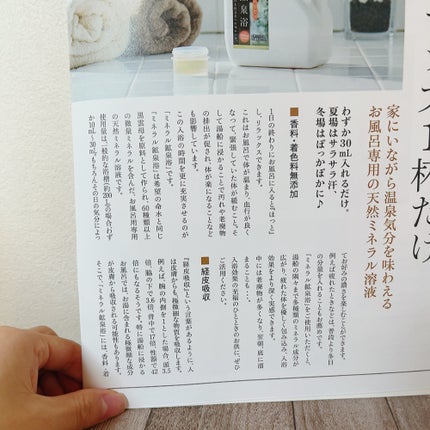 家にいながら温泉気分を味わえる
お風呂専用の天然ミネラル溶液
わずか30mL入れるだけ。
夏場はサラサラ汗、
冬場はぽっかぽかに♪
■香料・着色料無添加
1日の終わりにお風呂に入ると「ほっと」
し、リラックスできます。
これはお風呂で体が温まり、血行が良く
なって、緊張していた体が緩むこと、そ
して湯船に浸かることで汚れや老廃物
の排出が促され、体が楽になることなど
も影響しています。
この入浴の時間を更に充実させるのが
『ミネラル鉱泉浴』です。
『ミネラル鉱泉浴』は希望の命水と同じ
黒雲母を原料として作られ、60種類以上
の微量ミネラルを含んだ、お風呂用専用
の天然ミネラル溶液です。
使用量は一般的な浴槽（約200L）の場合わず
か10mL～30mL。もちろんその日の気分によっ
てお好みの濃さを楽しむことができます。
例えば疲れたときなどは、普段より多目
の分量を入れることもお薦めです。
『ミネラル鉱泉浴』をご使用いただくと、
湯船の隅々まで多種類のミネラル成分が
広がり、疲れた体を優しく包み込み、入浴
効果をより深く実感できます。
中には老廃物が多くなり、翌朝、底に溜
まることも…。
入浴効果の至福のひとときのお供に、ぜひ
ご活用ください。
■経皮吸収
「経皮吸収」という言葉があるように、人
は皮膚からも極微細な物質を吸収します。
例えば、腕の内側を1とした場合、頭3.5
倍、脇の下3.6倍、背中で17倍、性器で42
倍にもなるそうです。特に湯船に浸かる
お風呂では、お湯に含まれる極微細な成分
が皮膚から吸収される可能性もあります。
そこで『ミネラル鉱泉浴』には、香料・着